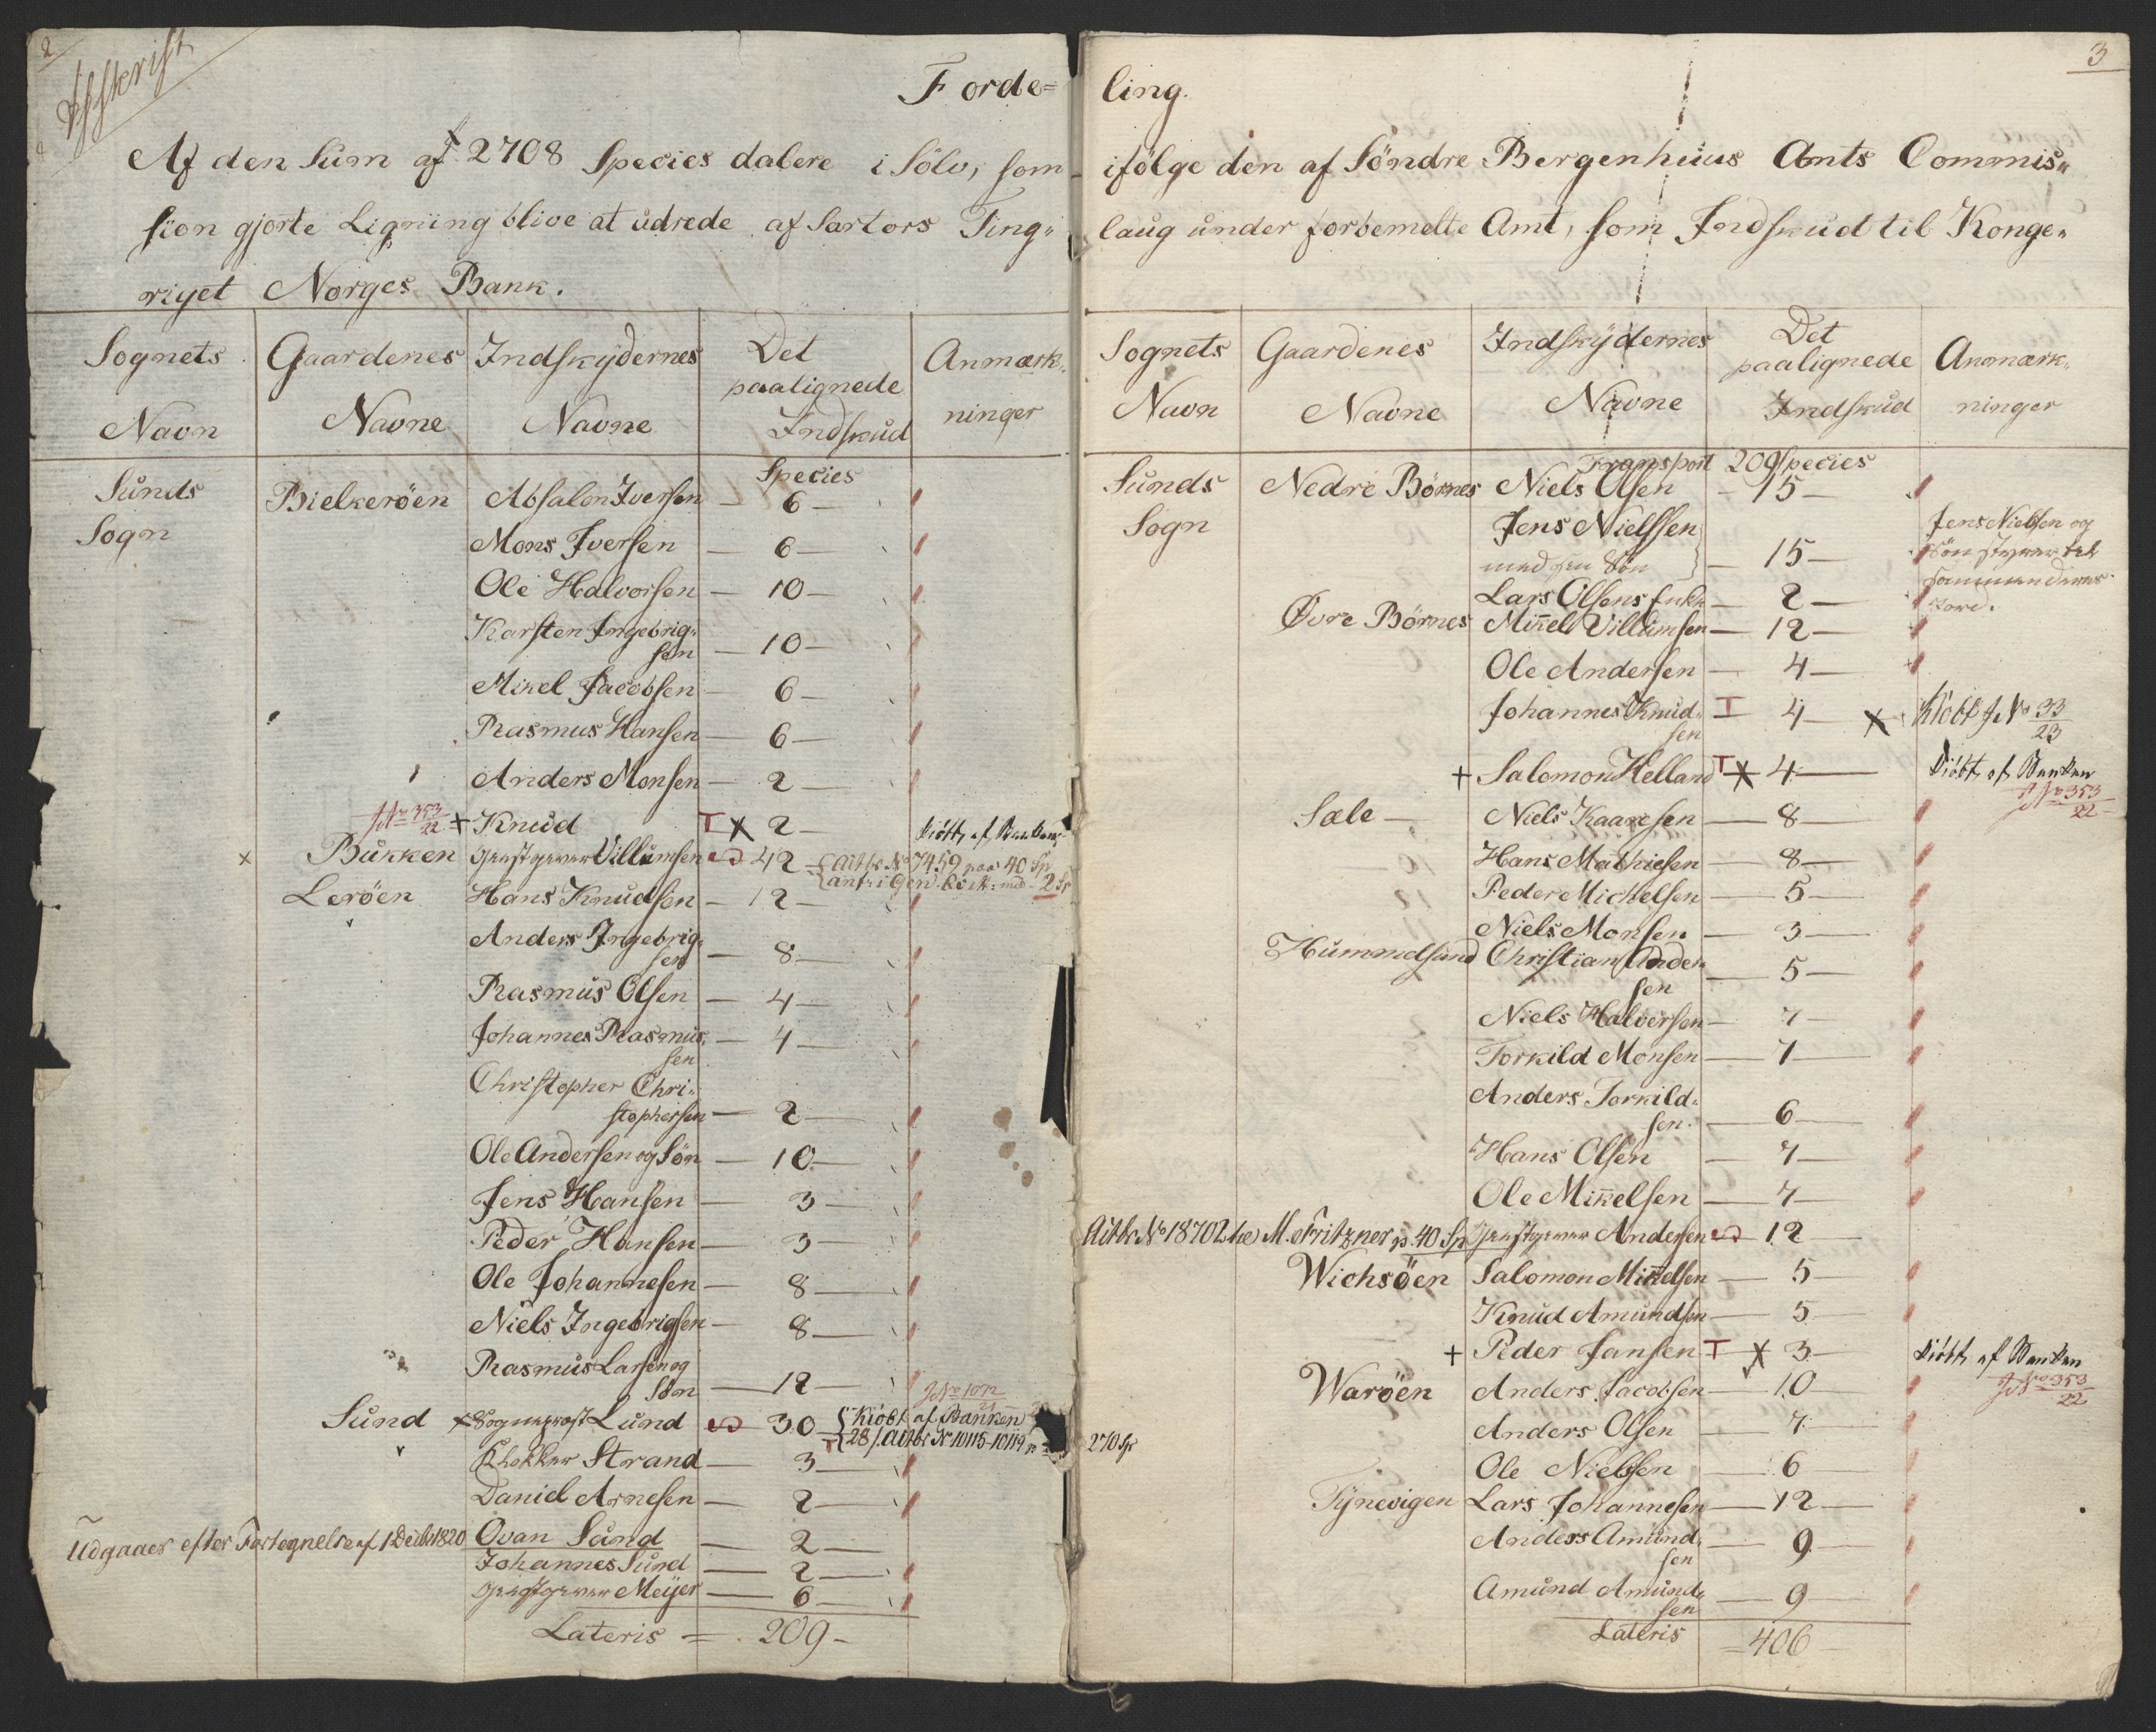 2
Afskrift
Forde=
Af den Sum af 2708 Species dalere i Sölv, som
sion gjorte Ligning blive at udrede af Sartors Ting„
riget Norges Bank.
Sognets Navn
Gaardenes Navne
Indskydernes Navne
Det paalignede Indskud
Anmærk„ ninger
Species
Sunds Sogn Bielkeröen Absalon Iversen — 6 —
Mons Iversen — 6 —
Ole Halvorsen — 10 —
Karsten Ingebrig„
sen — 10 —
Mikel Jacobsen — 6 —
Rasmus Hansen — 6 —
Anders Monsen — 2 —
No 353/22 + Knud T X 2 — Kiöbt af Banken
x Bukken Gjestgever Villumsen 42 { Actbr No 7459 paa 40 Sp
2 Sp
Leröen Hans Knudsen — 12 —
Anders Ingebrig„
sen — 8 —
Rasmus Olsen — 4 —
Johannes Rasmus„
sen — 4 —
Christopher Chri„
stophersen — 2 —
Ole Andersen og Sön — 10 —
Jens Hansen — 3 —
Peder Hansen — 3 —
Ole Johannesen — 8 —
Niels Ingebrigsen — 8 —
Rasmus Larsen og
Sön — 12 —
Sund x Sogneprost Lund 30 { Kiöbt af Banken
28 s. Actbr No 10115-10119 270 Sp
Klokker Strand — 3 —
Daniel Arnesen — 2 —
Udgaaer efter Fortegnelse af 1 Decbr 1820 Ovan Sund — 2 —
Johannes Sund — 2 —
Gjestgever Meyer — 6 —
Lateris = 209 —
3
ling.
ifölge den af Söndre Bergenhuus Amts Commis„
laug under forbemelte Amt, som Indskud til Konge„
Sognets Navn
Gaardenes Navne
Indskydernes Navne
Det paalignede Indskud
Anmærk„ ninger
Transport 209 Species
Sunds Sogn Nedre Börnes Niels Olsen — 15 —
Jens Nielssen
med sen Sön } — 15 — Jens Nielsen og
Sön styrer
sammen deres
Jord.
Lars Olsens Enke — 2 —
Övre Börnes Mikkel Villumsen — 12 —
Ole Andersen — 4 —
Johannes Knud„
sen T 4 — X Kiöbt J No 33/23
+ Salomon Helland T X 4 — Kiöbt af Banken
J No 353/22
Sæle — Niels Kaaresen — 8 —
Hans Mathiesen — 8 —
Peder Michelsen — 5 —
Niels Monsen — 3 —
Hummelsund Christian Ander„
sen — 5 —
Niels Halversen — 7 —
Torkild Monsen — 7 —
Anders Torkild„
sen. — 6 —
Hans Olsen — 7 —
Ole Mikkelsen — 7 —
Actbr No 18702 M. Fritzner p. 40 Sp Gjestgever Andersen 12 —
Wichsöen Salomon Mikkelsen — 5 —
Knud Amundsen — 5 —
+ Peder Jansen T X 3 — Kiöbt af Banken
J No 353/22
Waröen Anders Jacobsen — 10 —
Anders Olsen — 7 —
Ole Nielssen — 6 —
Tynevigen Lars Johannesen — 12 —
Anders Amund„
sen — 9 —
Amund Amund„
sen — 9 —
Lateris = 406 —